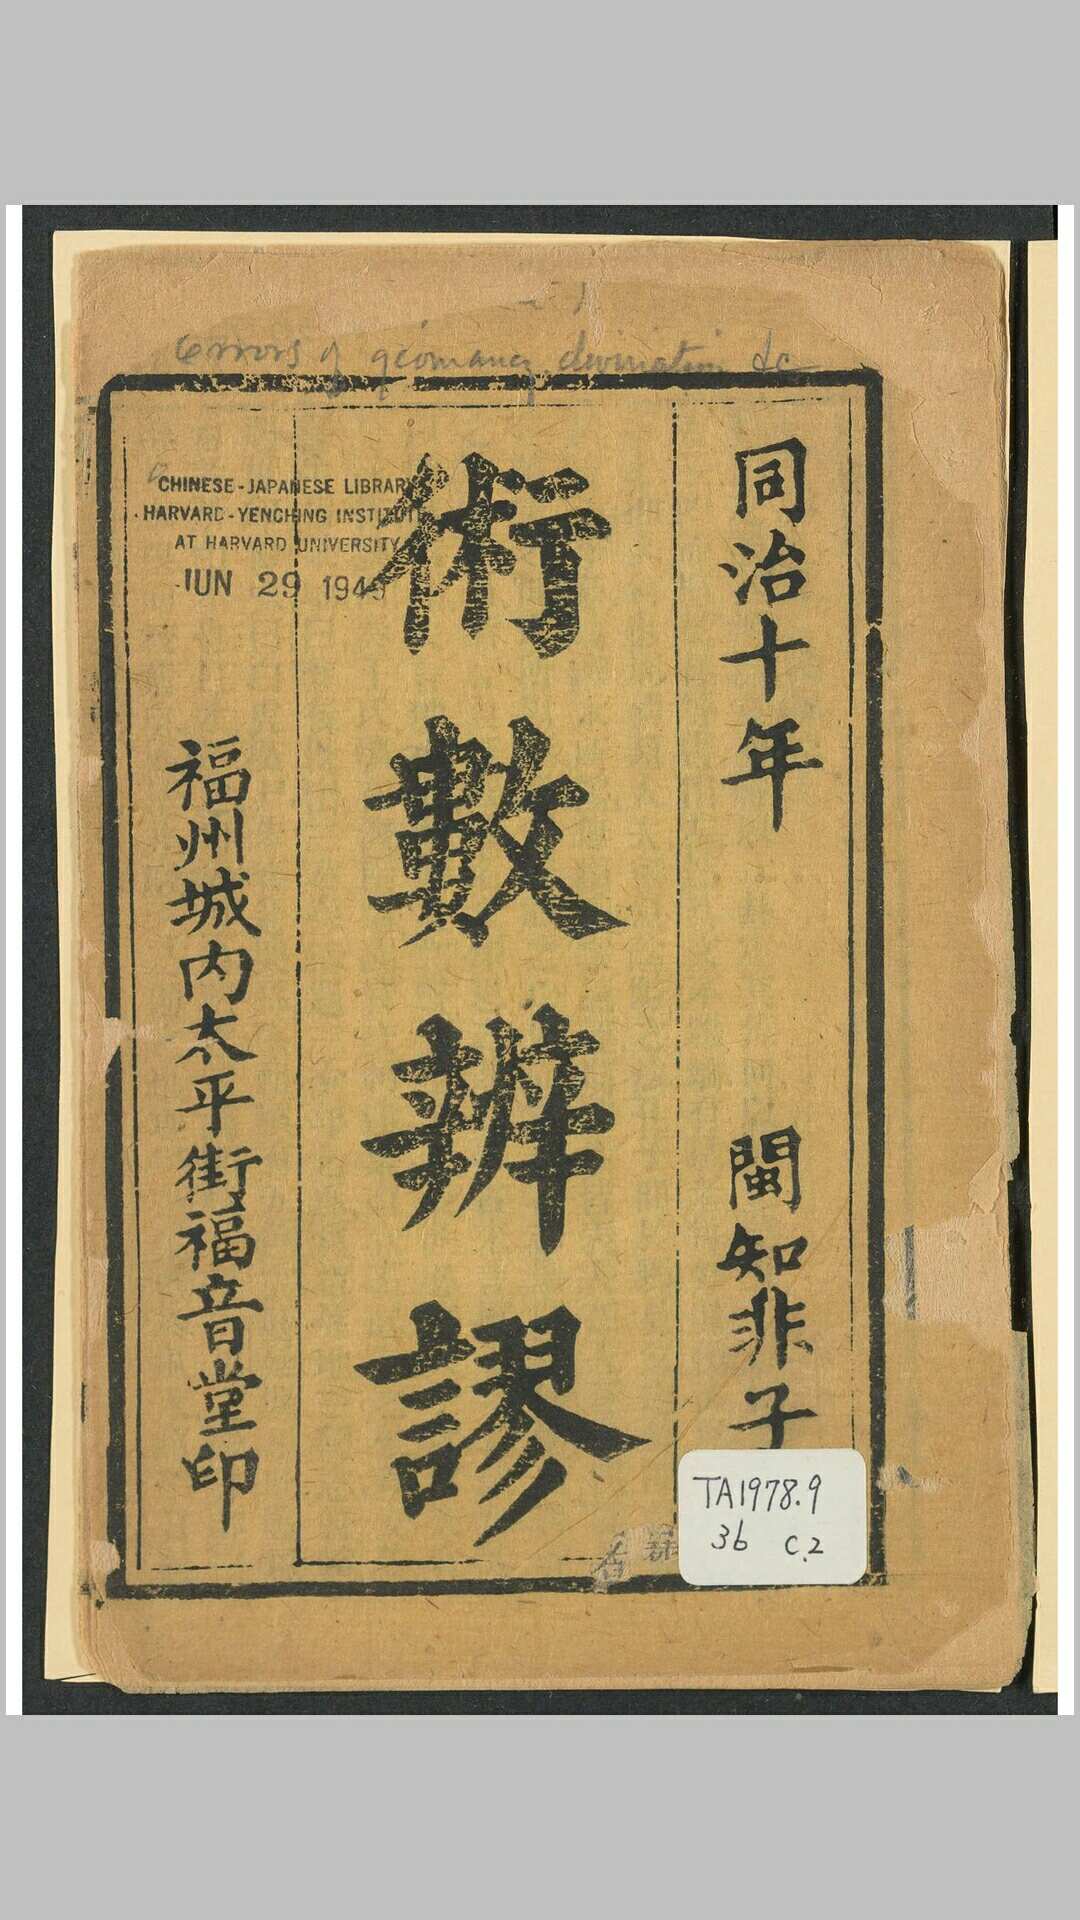 Errors of geomancy divination &c
同治十年
閩知非子
術數辨謬
福州城內太平街福音堂印
CHINESE-JAPANESE LIBRARY
HARVARD-YENCHING INSTITUT
AT HARVARD UNIVERSITY
JUN 29 1949
TA1978.9
36 C.2